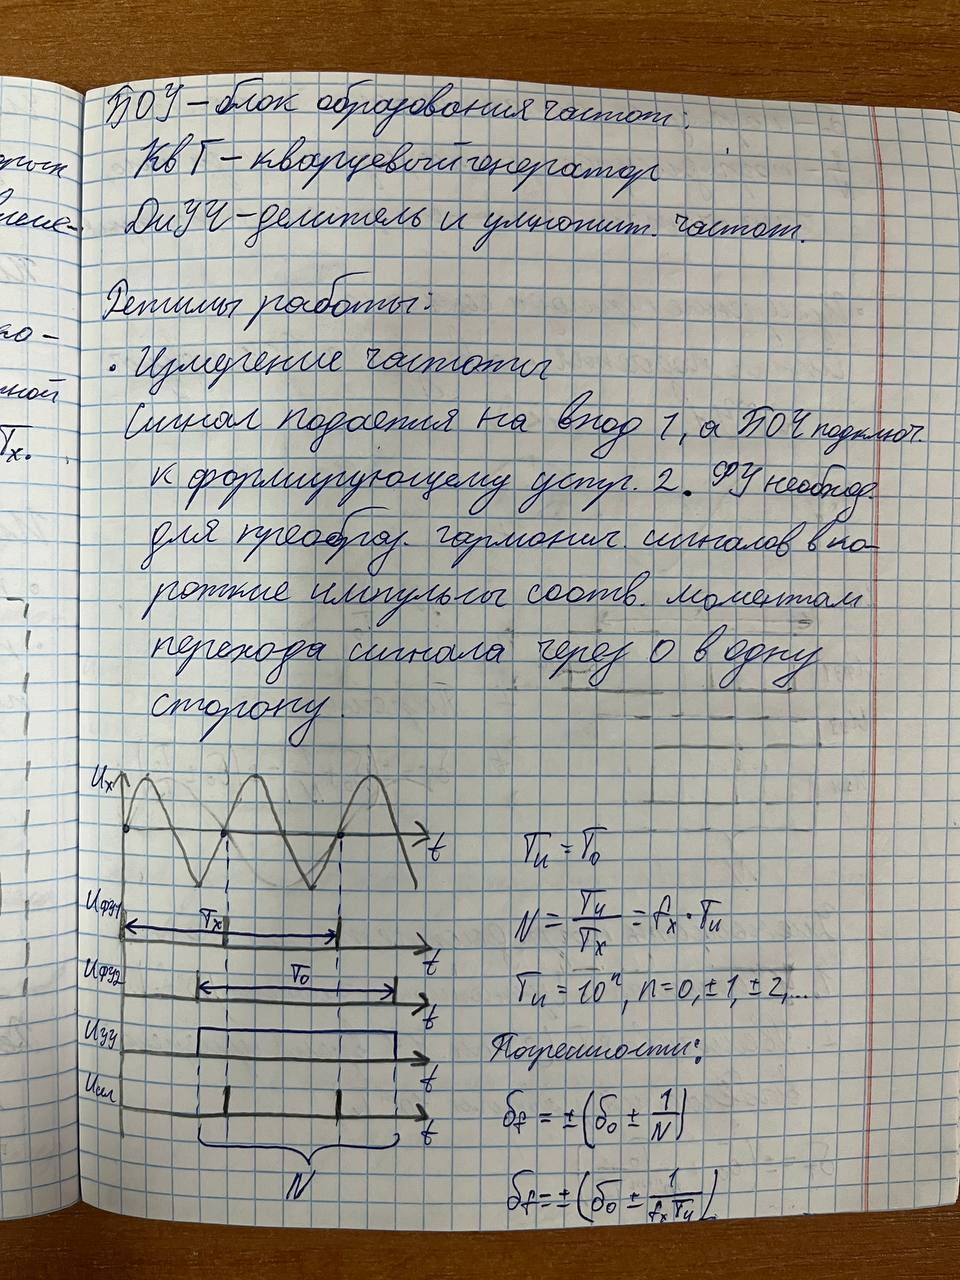 орых
нене-
ко-
ной
Tx.
БОУ – блок образования частот:
КвГ – кварцевый генератор
ДиУЧ – делитель и умножит. частот.
Режимы работы:
• Измерение частоты
Сигнал подается на вход 1, а БОЧ подключ.
к формирующему устр. 2. ФУ необход.
для преобраз. гармонич. сигналов в ко-
роткие импульсы соотв. моментам
перехода сигнала через 0 в одну
сторону.
Ux
t
Tи = T0
Uфу1
Tx
t
N = Tи/Tx = fx · Tи
Uфу2
T0
t
Tи = 10ⁿ, n = 0, ±1, ±2,...
Uуу
t
Погрешности:
Uсч
t
δf = ±(δ0 ± 1/N)
N
δf = ±(δ0 ± 1/(fx Tи))